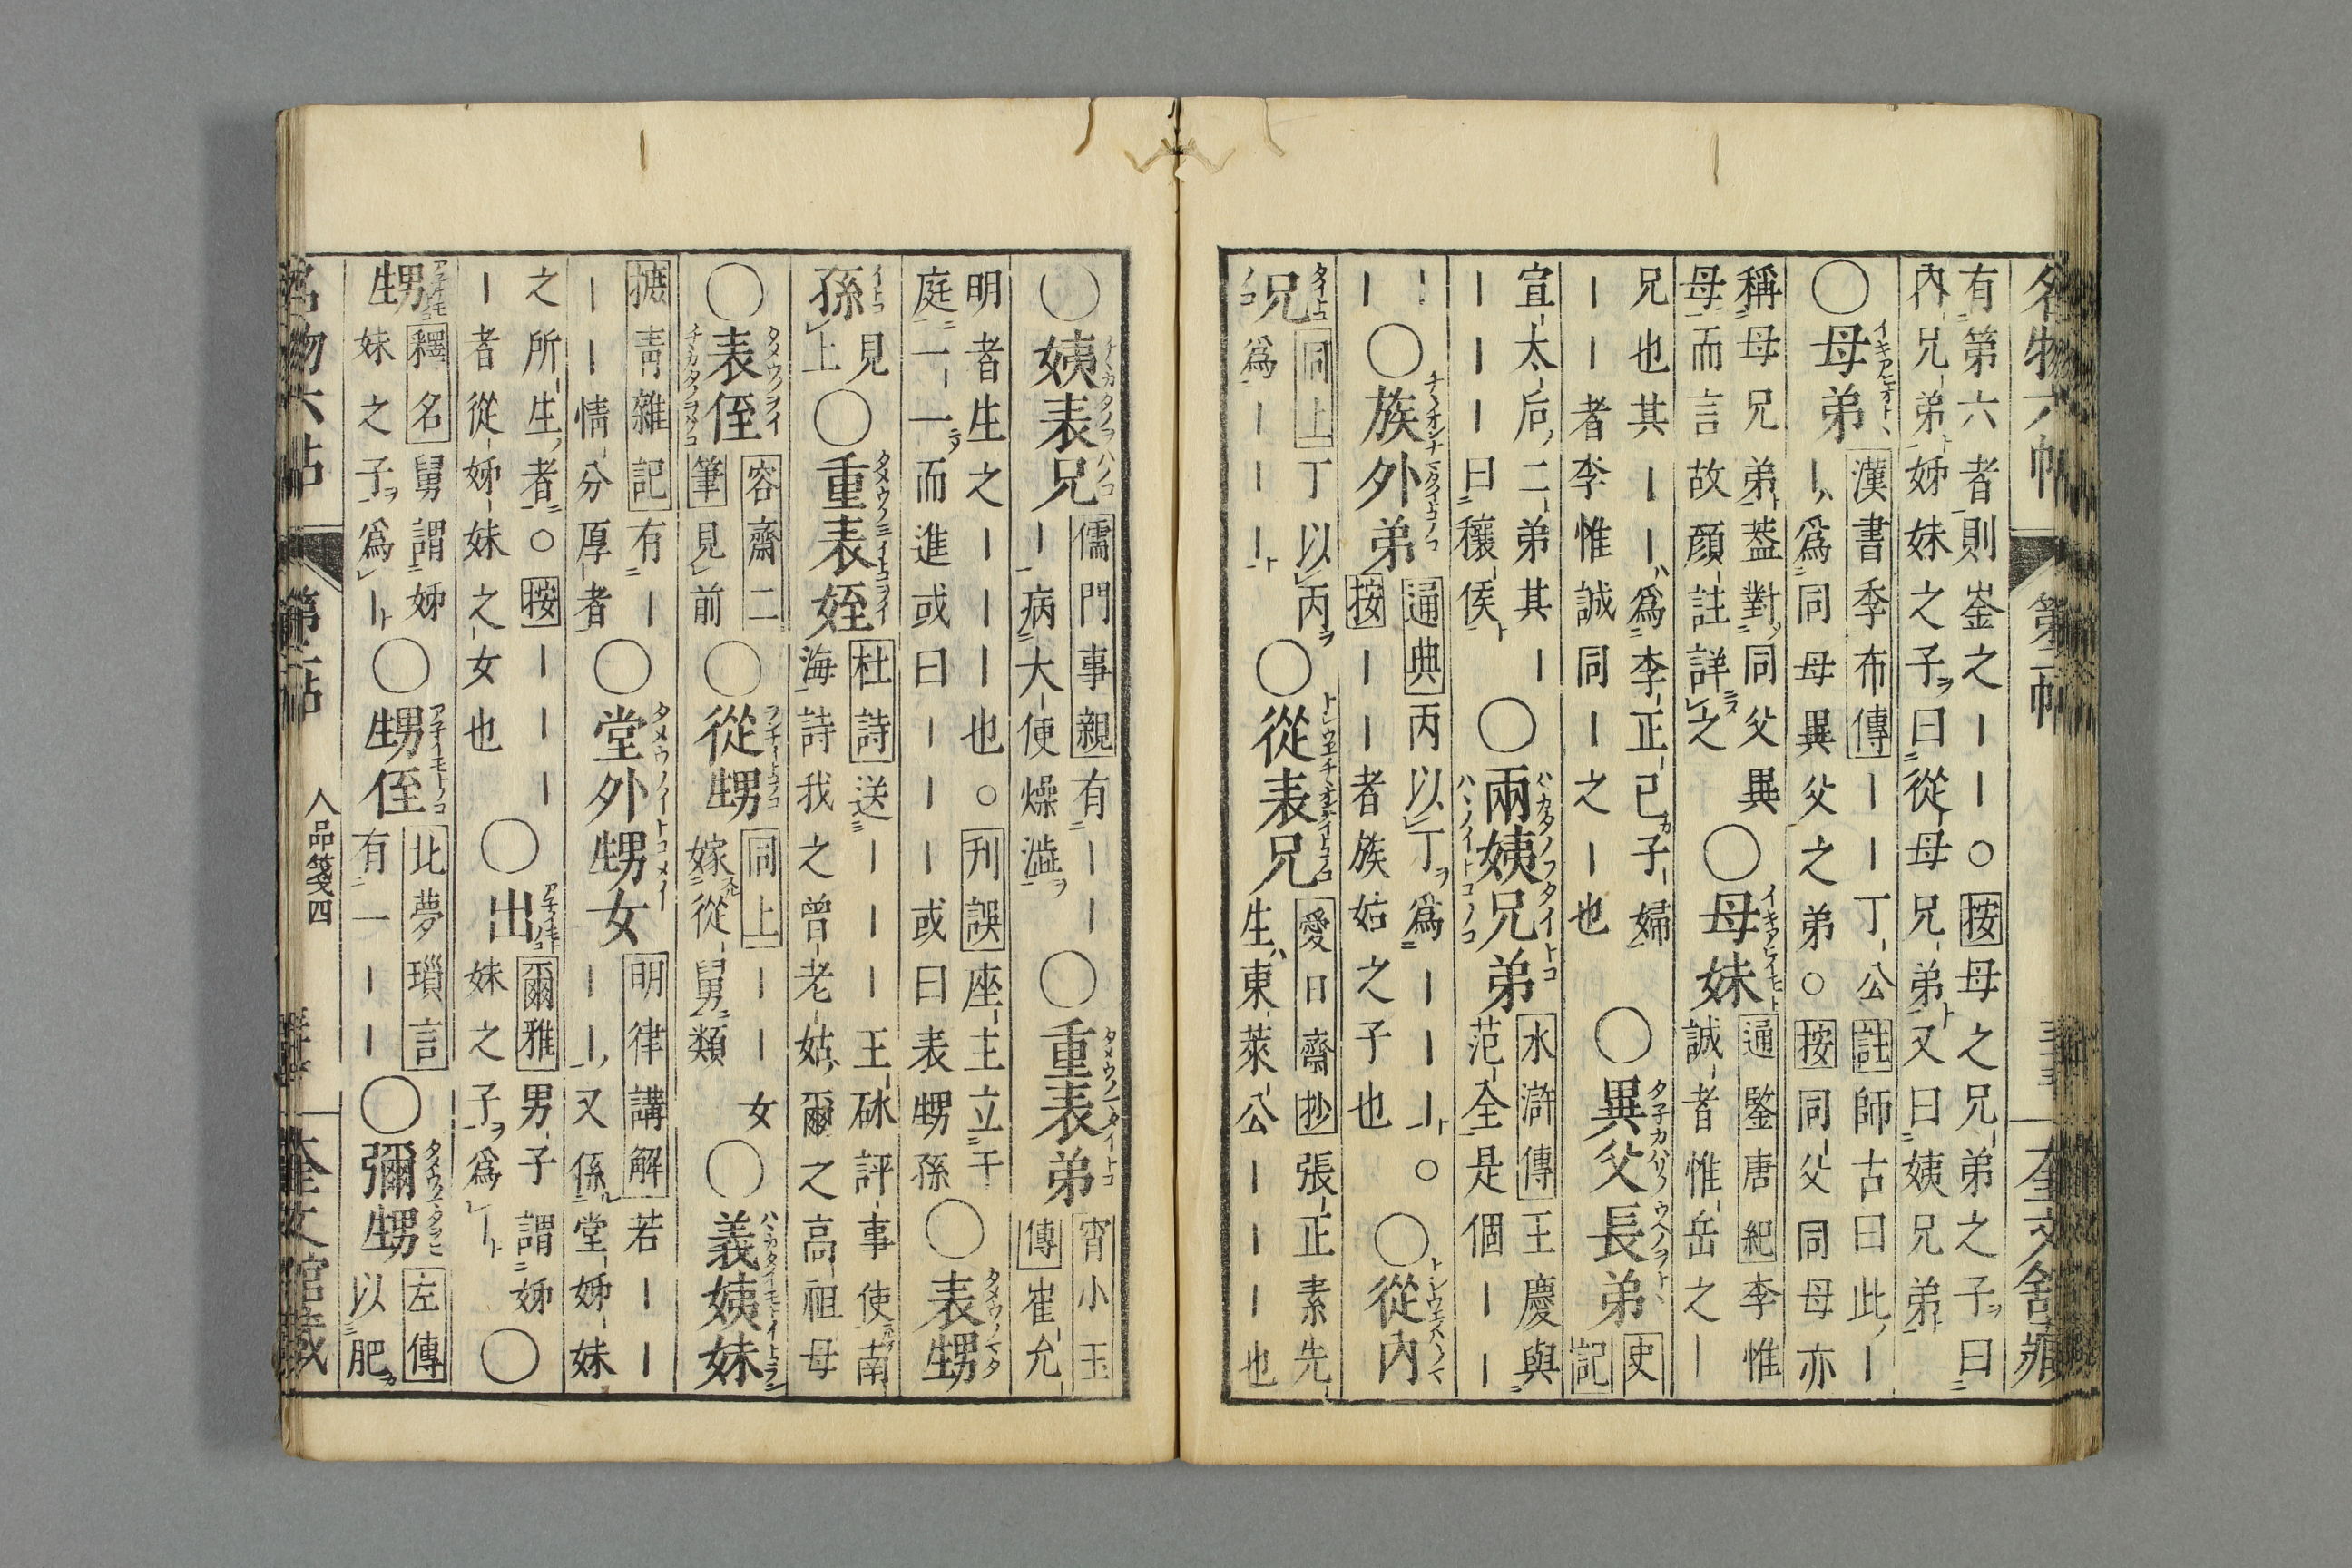 名物六帖 第二帖 奎文館藏
有第六者則崟之｜｜○按母之兄弟之子曰
內兄弟姊妹之子曰從母兄弟又曰姨兄弟
○母弟 漢書季布傳｜｜丁公註師古曰此｜
｜爲同母異父之弟○按同父同母亦
稱母兄弟葢對同父異
母而言故顏註詳之
○母妹 通鑒唐紀李惟
誠者惟岳之｜
兄也其｜｜爲李正己子婦
｜｜者李惟誠同｜之｜也
○異父長弟 史
記
宣太后二弟其｜
｜｜｜曰穰侯
○兩姨兄弟 水滸傳王慶與
范全是個｜｜
｜｜
○族外弟 通典丙以丁爲｜｜｜○
按｜｜者族姑之子也
○從內
兄 同上丁以丙
爲｜｜｜
○從表兄 愛日齋抄張正素先
生東萊公｜｜｜也
○姨表兄 儒門事親有｜｜
｜病大便燥澁
○重表弟 宵小玉
傳崔允
明者生之｜｜｜也○刋誤座主立于
庭一一而進或曰｜｜｜或曰表甥孫
○表甥
孫 見
上
○重表姪 杜詩送｜｜｜王砅評事使南
海詩我之曾老姑爾之高祖母
○表侄 容齋二
筆見前
○從甥 同上｜｜女
嫁從舅類
○義姨妹
摭靑雜記有｜
｜｜情分厚者
○堂外甥女 明律講解若｜｜
｜｜又係堂姊妹
之所生者○按｜｜｜
｜者從姊妹之女也
○出 爾雅男子謂姊
妹之子爲｜
○
甥 釋名舅謂姊
妹之子爲｜
○甥侄 北夢瑣言
有一｜｜
○彌甥 左傳
以肥
名物六帖 第二帖 人品箋四 奎文館藏